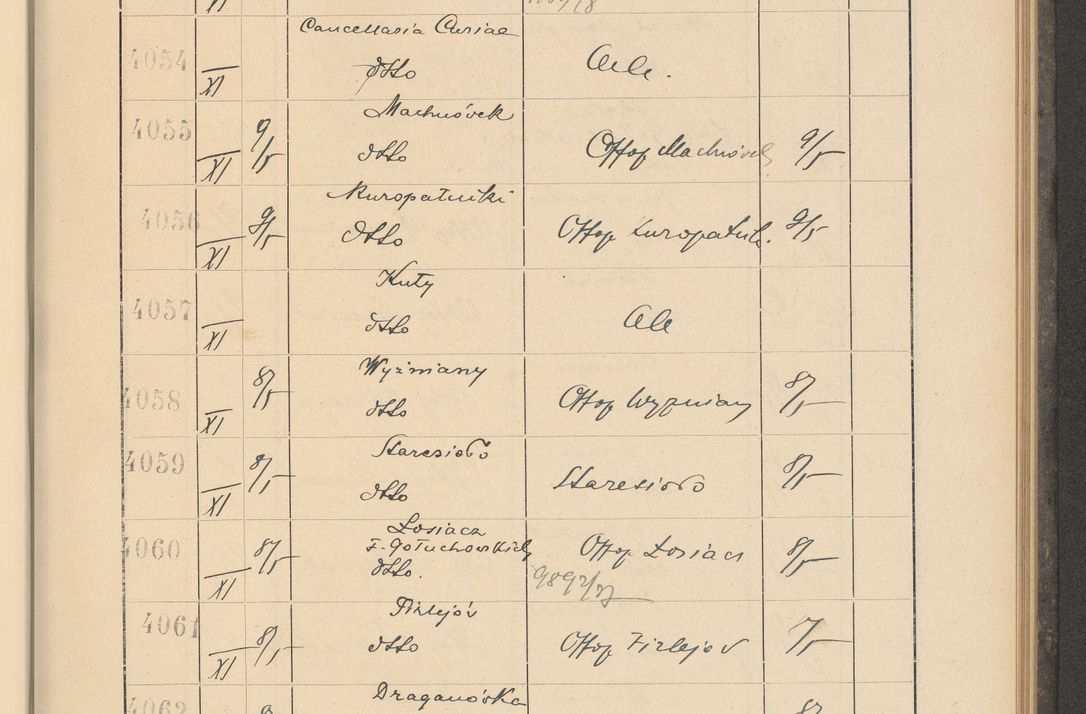 XI
4054 XI Cancellaria Curiae
dtto
4055 XI 9/5 Machnówek
dtto Machnówek 9/5
4056 XI 9/5 Kuropatniki
dtto Kuropatnik. 9/5
4057 XI Kuty
dtto
4058 XI 8/5 Wyżniany
dtto Wyżniany 8/5
4059 XI 8/5 Staresioło
dtto Staresioło 8/5
4060 XI 8/5 Łosiacz
F. Gołuchowskich
dtto. Łosiacz 8/5
9892/27
4061 XI 8/5 Firlejów
dtto Firlejów 7/5
4062 Draganówka